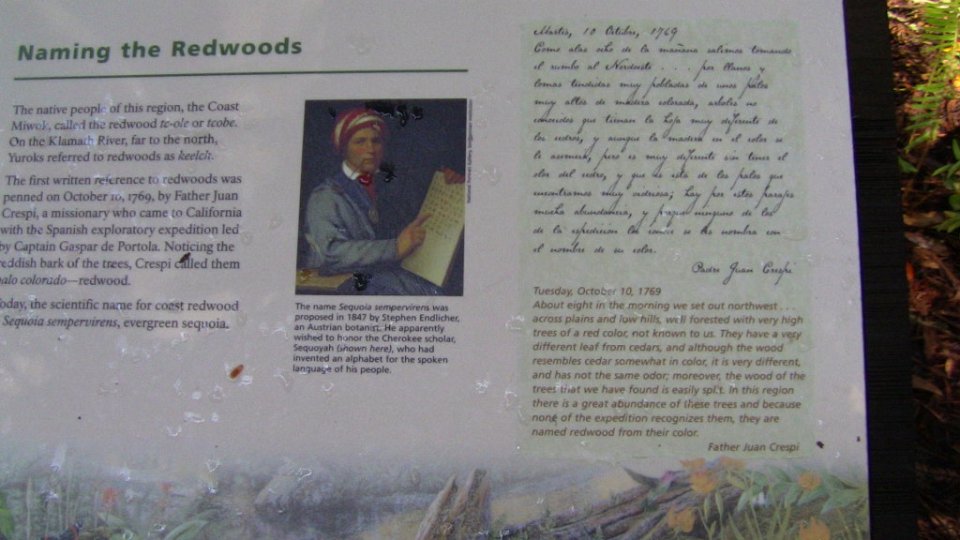 Naming the Redwoods
The native people of this region, the Coast
Miwok, called the redwood tc-ole or tcobe.
On the Klamath River, far to the north,
Yuroks referred to redwoods as keelch.
The first written reference to redwoods was
penned on October 10, 1769, by Father Juan
Crespi, a missionary who came to California
with the Spanish exploratory expedition led
by Captain Gaspar de Portola. Noticing the
reddish bark of the trees, Crespi called them
palo colorado—redwood.
Today, the scientific name for coast redwood
Sequoia sempervirens, evergreen sequoia.
The name Sequoia sempervirens was
proposed in 1847 by Stephen Endlicher,
an Austrian botanist. He apparently
wished to honor the Cherokee scholar,
Sequoyah (shown here), who had
invented an alphabet for the spoken
language of his people.
Martes, 10 Octubre, 1769
Como alas ocho de la mañana salimos tomando
el rumbo al Nordoeste . . . por llanos y
lomas tendidas muy pobladas de unos palos
muy altos de madera colorada, arboles no
conocidos que tienen la hoja muy diferente de
los cedros, y aunque la madera en el color se
le asemeja, pero es muy diferente sin tener el
olor del cedro, y que es esta de los palos que
encontramos muy vedriosa; hay por estos parajes
mucha abundancia, y porque ninguno de los
de la expedicion los conoce se les nombra con
el nombre de su color.
Padre Juan Crespi
Tuesday, October 10, 1769
About eight in the morning we set out northwest . . .
across plains and low hills, well forested with very high
trees of a red color, not known to us. They have a very
different leaf from cedars, and although the wood
resembles cedar somewhat in color, it is very different,
and has not the same odor; moreover, the wood of the
trees that we have found is easily split. In this region
there is a great abundance of these trees and because
none of the expedition recognizes them, they are
named redwood from their color.
Father Juan Crespi